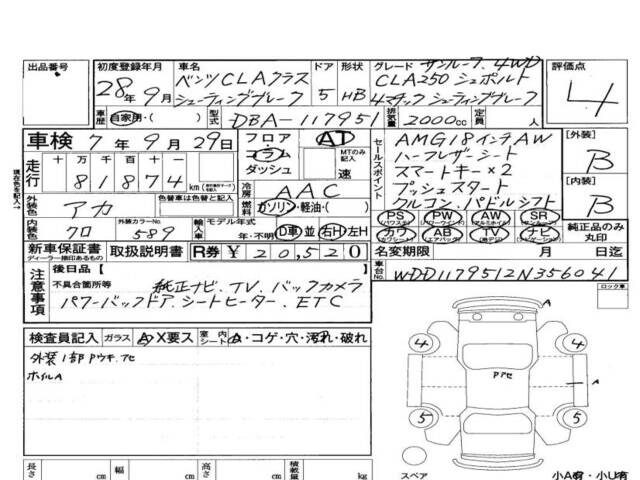 出品番号
初度登録年月 28年9月
車名 ベンツCLAクラス シューティングブレーク
ドア 5 形状 HB
グレード サンルーフ.4WD
CLA250 シュポルト
4マチック シューティングブレーク
評価点 4
車歴 自家用・( ) 型式 DBA-117951 排気量 2000cc 定員 人
車検 7年9月29日
フロア コラム ダッシュ
AT MTのみ記入 速
走行 十 万 千 百 十
81874 km
セールスポイント
AMG18インチAW
ハーフレザーシート
スマートキー×2
プッシュスタート
クルコン、パドルシフト
[外装] B
[内装] B
冷房 AAC
外装色 アカ 色替車は色替と記入
燃料 ガソリン・軽油・(
内装色 クロ 外装カラーNo. 589
輸入車記入 モデル年式 年・不明 D車 並 右H 左H
PS PW AW SR
カワ AB TV ナビ
純正品のみ丸印
新車保証書 取扱説明書 R券 ¥20,520
ディーラー捺印あるもの
名変期限 月 日迄
車台No. WDD1179512N356041
注意事項
後日品 [ ]
不具合箇所等
純正ナビ、TV、バックカメラ
パワーバックドア.シートヒーター、ETC
ロック車
検査員記入 ガラス A・X要ス 室内シート ・コゲ・穴・汚れ・破れ
外装1部Pウキ.アセ
ホイルA
4 4
Pアセ A
5 5
スペア
小A有・小U有
長さ cm 幅 cm 高さ cm 積載量 kg
現在色を記入↑